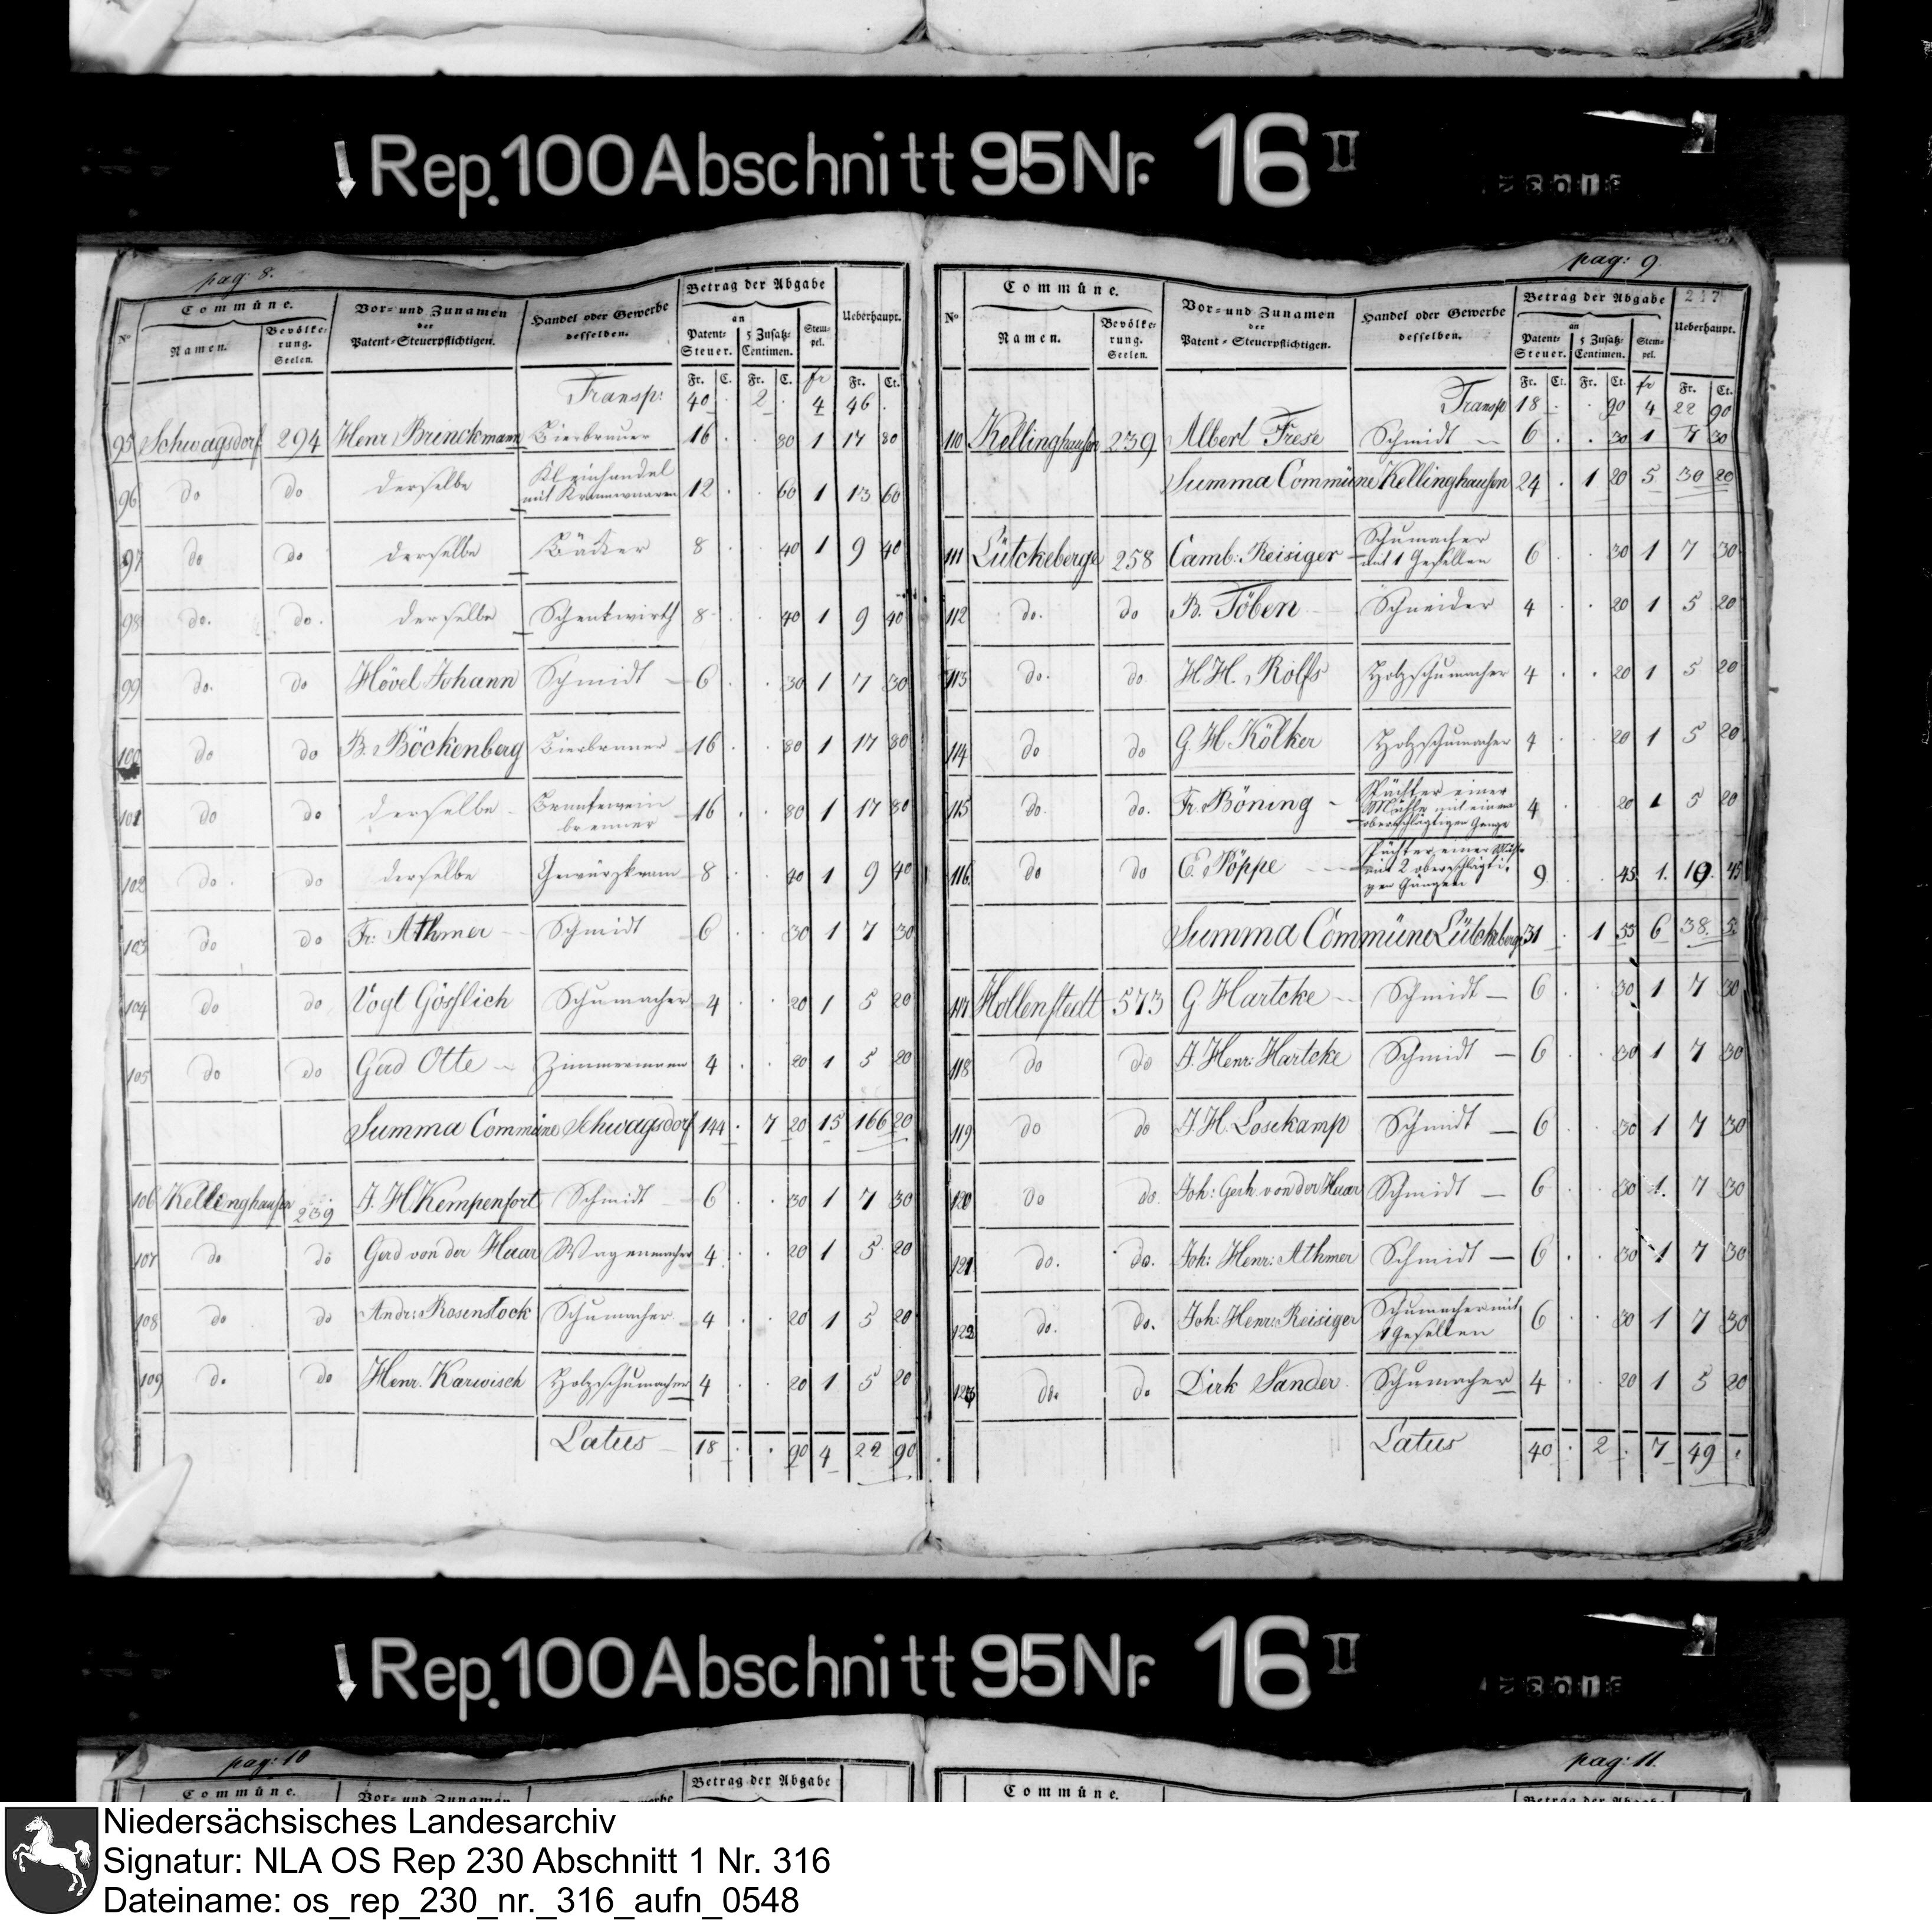 Rep. 100 Abschnitt 95 Nr. 16 II
pag: 8.
Nº Commüne. Vor= und Zunamen der Patent=Steuerpflichtigen. Handel oder Gewerbe desselben. Betrag der Abgabe Ueberhaupt.
Namen. Bevölke=rung. Seelen. an Patent=Steuer. 5 Zusatz=Centimen. Stem=pel.
Fr. C. Fr. C. fr Fr. Ct.
Transp: 40 . 2 . 4 46 .
95 Schwagsdorf 294 Henr Brinckmann Bierbrauer 16 . . 80 1 17 80
96 do do derselbe Kleinhandel mit Kramwaaren 12 . . 60 1 13 60
97 do do derselbe Bäcker 8 . . 40 1 9 40
98 do. do. derselbe Schenkwirth 8 . . 40 1 9 40
99 do. do Hövel Johann Schmidt 6 . . 30 1 7 30
100 do do B. Böckenberg Bierbrauer 16 . . 80 1 17 80
101 do do derselbe Brantewein brenner 16 . . 80 1 17 80
102 do. do derselbe Gewürzkram 8 . . 40 1 9 40
103 do do Fr: Athmer Schmidt 6 . . 30 1 7 30
104 do do Vogt Gösslich Schumacher 4 . . 20 1 5 20
105 do do Gerd Otte Zimmermann 4 . . 20 1 5 20
Summa Commüne Schwagsdorf 144 . 7 20 15 166 20
106 Kellinghausen 239 J. H. Kempenfort Schmidt 6 . . 30 1 7 30
107 do do Gerd von der Haar Wagenmacher 4 . . 20 1 5 20
108 do do Andr: Rosenstock Schumacher 4 . . 20 1 5 20
109 do do Henr. Karwisch Holzschumacher 4 . . 20 1 5 20
Latus 18 . . 90 4 22 90
pag: 9.
217
Nº Commüne. Vor= und Zunamen der Patent=Steuerpflichtigen. Handel oder Gewerbe desselben. Betrag der Abgabe Ueberhaupt.
Namen. Bevölke=rung. Seelen. an Patent=Steuer. 5 Zusatz=Centimen. Stem=pel.
Fr. Ct. Fr. Ct. fr Fr. Ct.
Transp 18 . . 90 4 22 90
110 Kellinghausen 239 Albert Frese Schmidt 6 . . 30 1 7 30
Summa Commüne Kellinghausen 24 . 1 20 5 30 20
111 Lütckeberge 258 Camb: Reisiger Schumacher mit 1 Gesellen 6 . . 30 1 7 30
112 do. do B. Töben Schneider 4 . . 20 1 5 20
113 do. do. H H. Rolfs Holzschumacher 4 . . 20 1 5 20
114 do do G. H Kölker Holzschumacher 4 . . 20 1 5 20
115 do. do. Fr. Böning Pächter einer Mühle mit einem oberschlägtigen Gange 4 . . 20 1 5 20
116. do do C. Pöppe Pächter einer Mühle mit 2 oberschlägtigen Gängen 9 . . 45 1. 10. 45
Summa Commüne Lütckeberge 31 . 1 55 6 38. 5.
117 Hollenstedt 573 G Hartcke Schmidt 6 . . 30 1 7 30
118 do do J. Henr: Hartcke Schmidt 6 . . 30 1 7 30
119 do do J H. Losekamp Schmidt 6 . . 30 1 7 30
120 do do. Joh: Gerh. von der Haar Schmidt 6 . . 30 1. 7 30
121 do. do. Joh: Henr: Athmer Schmidt 6 . . 30 1 7 30
122 do. do. Joh: Henr: Reisiger Schumacher mit 1 Gesellen 6 . . 30 1 7 30
123 do. do Dirk Sander Schumacher 4 . . 20 1 5 20
Latus 40 . 2 . 7 49 .
Rep. 100 Abschnitt 95 Nr. 16 II
pag: 10
Commüne. Vor= und Zunamen Betrag der Abgabe
pag: 11.
Commüne. Betrag der Abgabe
Niedersächsisches Landesarchiv
Signatur: NLA OS Rep 230 Abschnitt 1 Nr. 316
Dateiname: os_rep_230_nr._316_aufn_0548